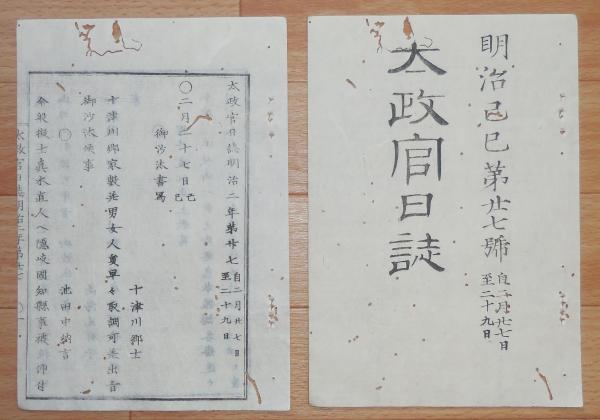 明治己巳第廿七號 自二月廿七日至二十九日
太政官日誌
太政官日誌明治二年第廿七 自二月廿七日至二十九日
〇二月二十七日己巳
御沙汰書寫
十津川郷士
十津川郷家數並男女人員早々取調可差出旨
御沙汰候事
〇
池田中納言
今般徴士真木直人ヘ隠岐國知縣事被
太政官日誌明治二年第廿七 〇一